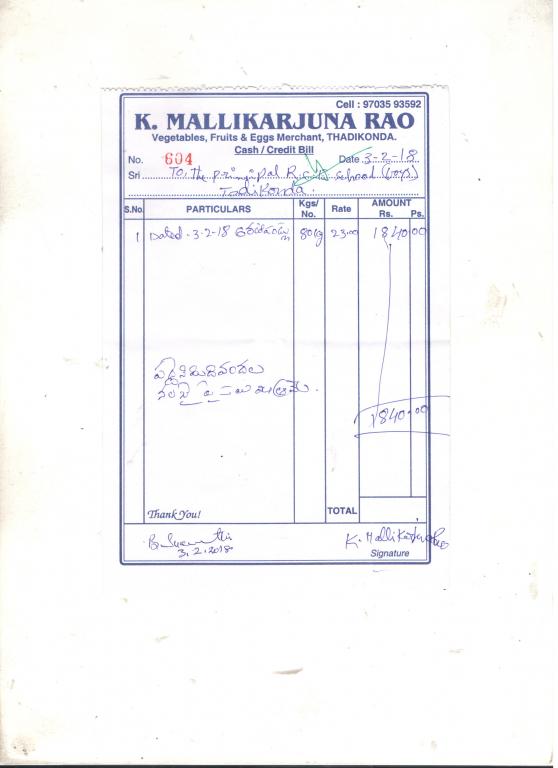 Cell : 97035 93592
K. MALLIKARJUNA RAO
Vegetables, Fruits & Eggs Merchant, THADIKONDA.
Cash / Credit Bill
No. 604 Date 3-2-18
Sri To, the principal school
Tadikonda.
S.No. PARTICULARS Kgs/ No. Rate AMOUNT Rs. Ps.
1 Dated - 3-2-18 80kg 23.00 1840.00
1840.00
Thank You! TOTAL
3.2.2018 K. Mallikarjuna Rao
Signature